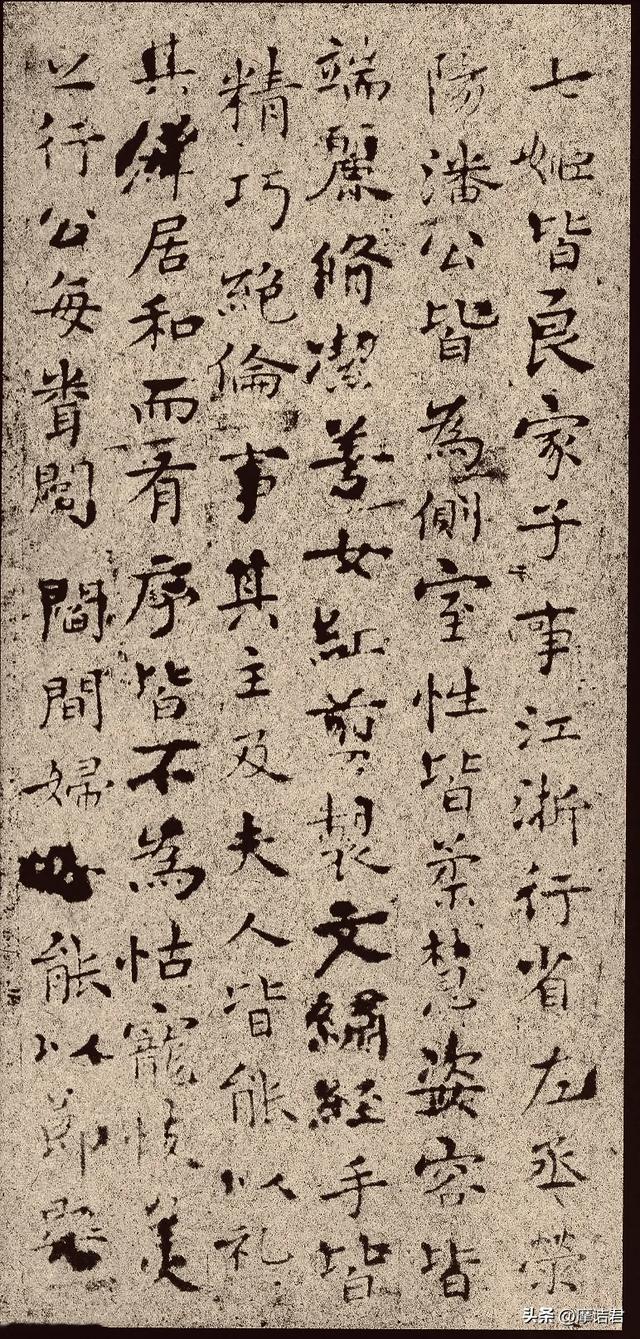 七姬皆良家子事江浙行省左丞榮
潘公皆為側室性皆柔慧姿容皆
端麗脩潔善女紅剪製文繡經手皆
精巧絕倫事其主及夫人皆能以礼
其居和而有序皆不為怙寵忮美
之行公每間婦能以節
头条 @摩诘君